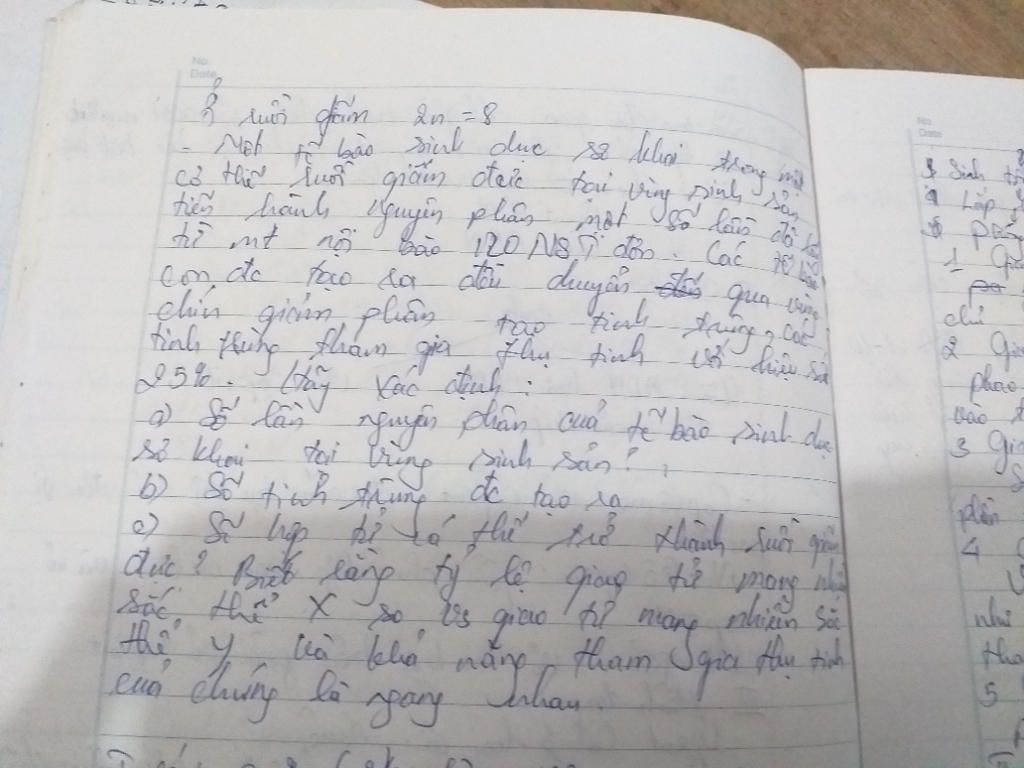 No.
Date
Ở ruồi giấm 2n = 8
- Một tế bào sinh dục sơ khai trong một
cơ thể ruồi giấm đực tại vùng sinh sản
tiến hành nguyên phân một số lần đã lấy
từ mt nội bào 120 NST đơn. Các tế bào
con đc tạo ra đều chuyển qua vùng
chín giảm phân tạo tinh trùng, các
tinh trùng tham gia thụ tinh với hiệu suất
25%. Hãy xác định:
a) Số lần nguyên phân của tế bào sinh dục
sơ khai tại vùng sinh sản?
b) Số tinh trùng đc tạo ra
c) Số hợp tử có thể trở thành ruồi giấm
đực? Biết rằng tỷ lệ giao tử mang nhiễm
sắc thể X so vs giao tử mang nhiễm sắc
thể Y và khả năng tham gia thụ tinh
của chúng là ngang nhau.
No.
Date
Sinh
Lắp
1
chủ
2 Giả
phao
vào
3 Giả
phân
4
như
tha
5